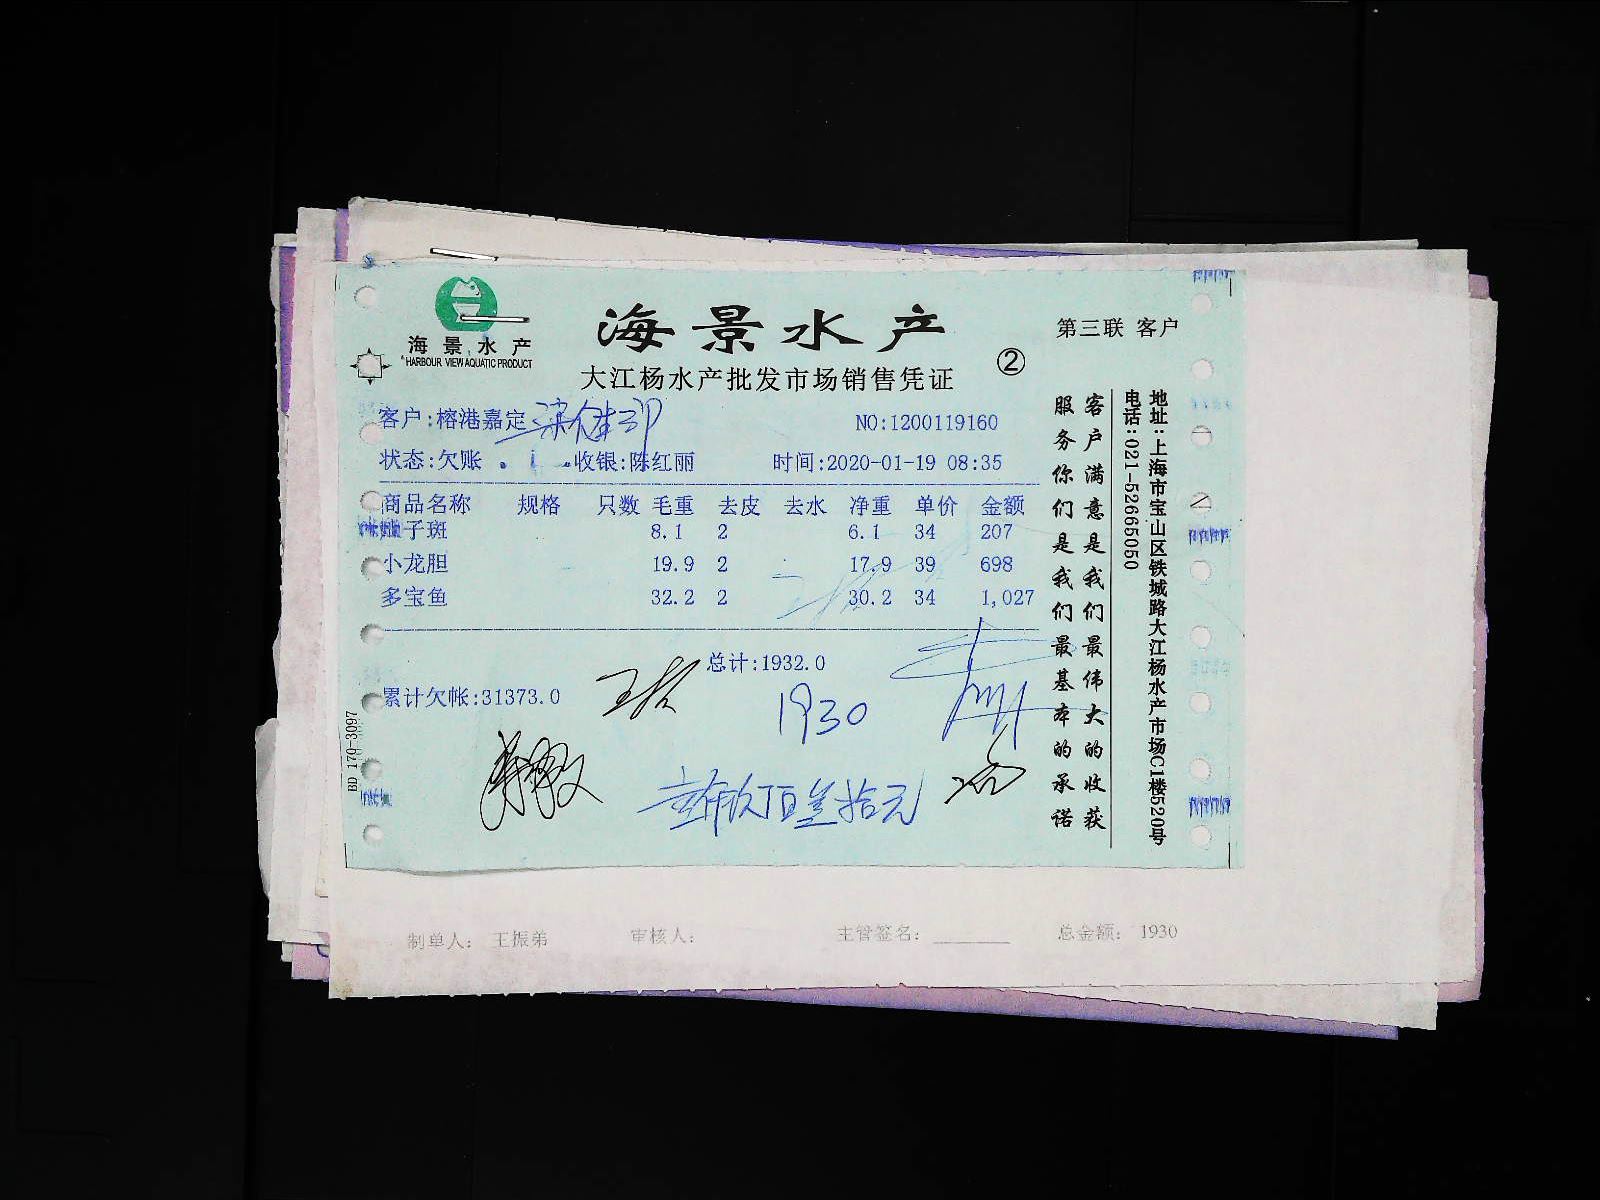 海景水产
HARBOUR VIEW AQUATIC PRODUCT
海景水产
大江杨水产批发市场销售凭证
②
第三联 客户
客户:榕港嘉定
NO:1200119160
状态:欠账 收银:陈红丽 时间:2020-01-19 08:35
商品名称 规格 只数 毛重 去皮 去水 净重 单价 金额
子斑 8.1 2 6.1 34 207
小龙胆 19.9 2 17.9 39 698
多宝鱼 32.2 2 30.2 34 1,027
总计:1932.0
累计欠帐:31373.0
1930
BD 170-3097
客户满意是我们最伟大的收获
服务你们是我们最基本的承诺
地址:上海市宝山区铁城路大江杨水产市场C1楼520号
电话:021-52665050
制单人: 王振弟 审核人: 主管签名: 总金额: 1930